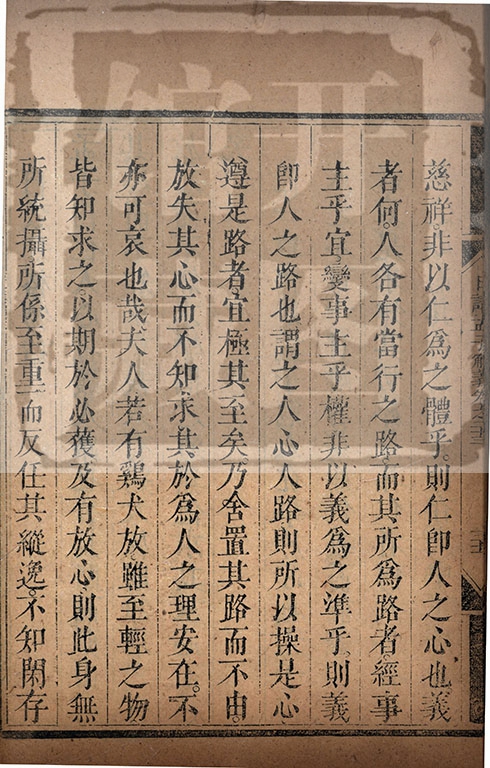 慈祥。非以仁爲之體乎。則仁卽人之心也義
者何。人各有當行之路。而其所爲路者。經事
主乎宜。變事主乎權。非以義爲之準乎。則義
卽人之路也。謂之人心人路。則所以操是心
遵是路者。宜極其至矣。乃舍置其路而不由。
放失其心而不知求。其於爲人之理安在。不
亦可哀也哉。夫人若有鷄犬放。雖至輕之物
皆知求之。以期於必獲。及有放心。則此身無
所統攝。所係至重。而反任其縱逸。不知閑存